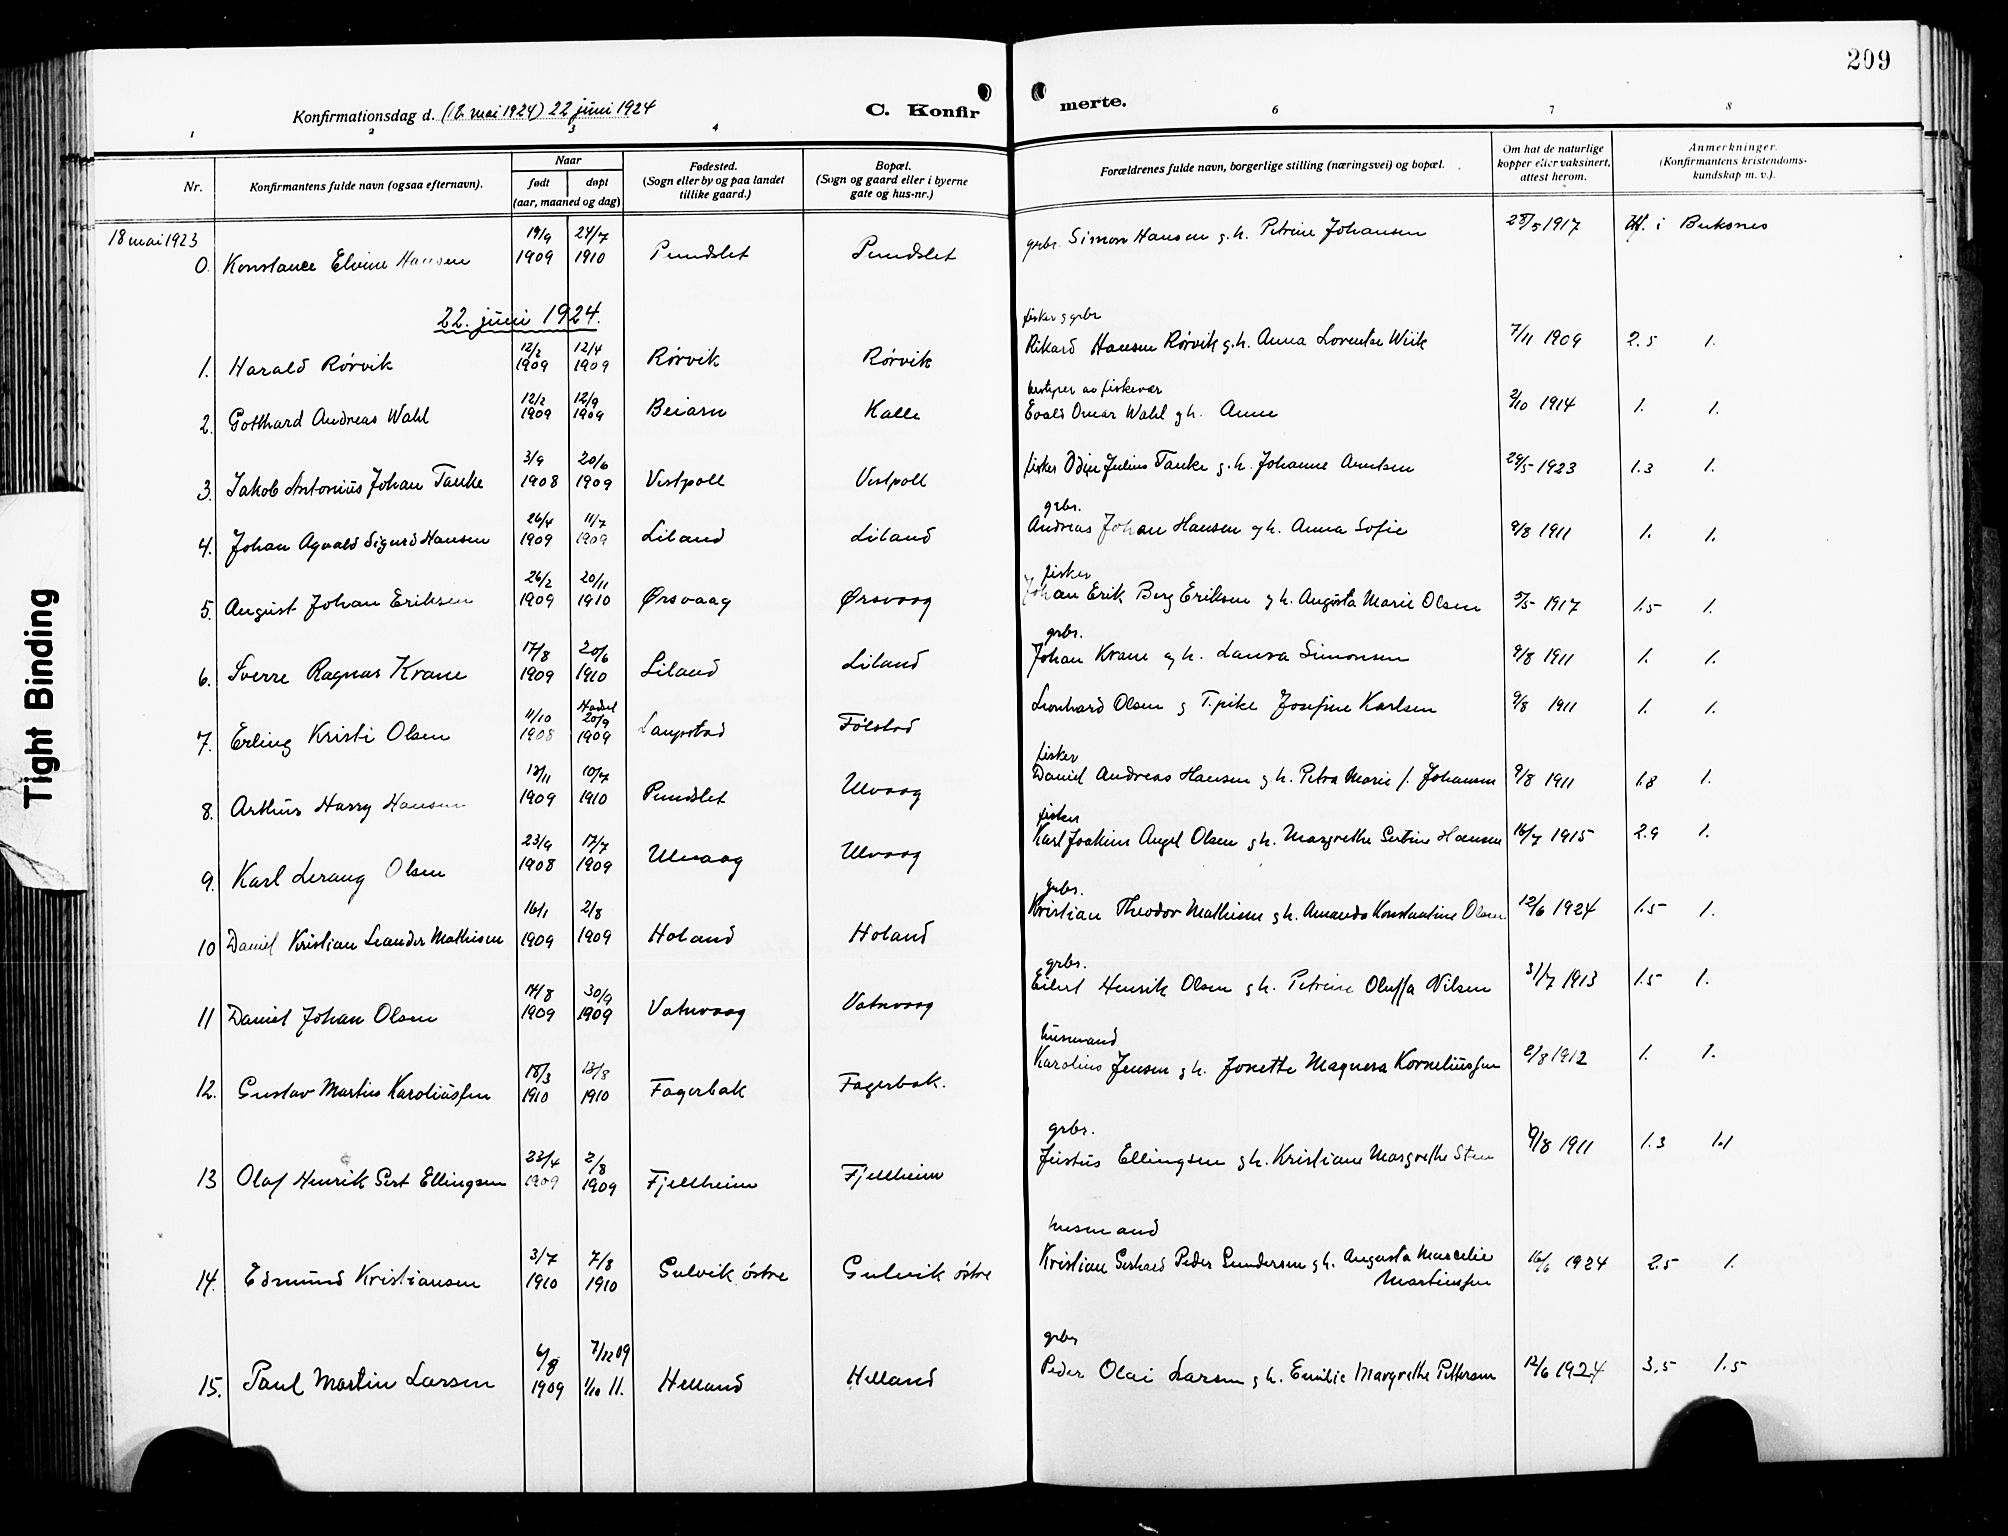 209
Konfirmationsdag d. (18. mai 1924) 22 juni 1924
C. Konfirmerte.
1 2 3 4 6 7 8
Nr.
Konfirmantens fulde navn (ogsaa efternavn).
Naar
født døpt
(aar, maaned og dag)
Fødested.
(Sogn eller by og paa landet
tillike gaard.)
Bopæl.
(Sogn og gaard eller i byerne
gate og hus-nr.)
Forældrenes fulde navn, borgerlige stilling (næringsvei) og bopæl.
Om hat de naturlige
kopper eller vaksinert,
attest herom.
Anmerkninger.
(Konfirmantens kristendoms-
kundskap m. v.).
18 mai 1923
0. Konstance Elvine Hansen 19/9 1909 24/7 1910 Pundslet Pundslet grbr. Simon Hansen g. h. Petrine Johansen 28/5 1917 i Buksnes
22. juni 1924.
fisker g grbr
1. Harald Rørvik 12/2 1909 12/4 1909 Rørvik Rørvik Rikard Hansen Rørvik g. h. Anna Lorentse Wiik 7/11 1909 2.5 1.
bestyrer av fiskevær
2. Gotthard Andreas Wahl 12/2 1909 12/9 1909 Beiarn Kalle Evald Omar Wahl g h. Anne 2/10 1914 1. 1.
3. Jakob Antonius Johan Tanke 3/9 1908 20/6 1909 Vestpoll Vestpoll fisker Odin Julius Tanke g. h. Johanne Arntsen 29/5 1923 1.3 1.
grbr.
4. Johan Agvald Sigurd Hansen 26/4 1909 11/7 1909 Liland Liland Andreas Johan Hansen g h. Anna Sofie 9/8 1911 1. 1.
fisker
5. August Johan Eriksen 26/2 1909 20/11 1910 Ørsvaag Ørsvaag Johan Erik Berg Eriksen g h. Augusta Marie Olsen 5/5 1917 1.5 1.
grbr.
6. Sverre Ragnar Krane 17/8 1909 20/6 1910 Liland Liland Johan Krane g h. Laura Simonsen 9/8 1911 1. 1.
7. Erling Kristi Olsen 11/10 1908 Hadsel 20/9 1909 Laupstad Følstad Leonhard Olsen g T.pike Josefine Karlsen 9/8 1911 1. 1.
fisker
8. Arthur Harry Hansen 13/11 1909 10/7 1910 Pundslet Ulvaag Daniel Andreas Hansen g h. Petra Marie f. Johansen 9/8 1911 1.8 1.
fisker
9. Karl Lerang Olsen 23/9 1908 17/7 1909 Ulvaag Ulvaag Karl Joakim Angel Olsen g h. Margrethe Sertine Hansen 16/7 1915 2.9 1.
grbr.
10 Daniel Kristian Leander Mathisen 16/1 1909 2/8 1909 Holand Holand Kristian Theodor Mathisen g h. Amanda Konstantine Olsen 12/6 1924 1.5 1.
grbr.
11 Daniel Johan Olsen 14/8 1909 30/9 1909 Vatnvaag Vatnvaag Eilert Henrik Olsen g h. Petrine Oluffa Nilsen 31/7 1913 1.5 1.
husmand
12. Gustav Martin Karoliussen 18/3 1910 13/8 1910 Fagerbak Fagerbak. Karolius Jensen g h. Jonette Magnera Korneliussen 2/8 1912 1. 1.
grbr.
13 Olaf Henrik Gert Ellingsen 23/4 1909 2/8 1909 Fjellheim Fjellheim Justus Ellingsen g h. Kristiane Margrethe Steen 9/8 1911 1.3 1.1
husmand
14. Edmund Kristiansen 3/7 1910 7/8 1910 Gulvik østre Gulvik østre Kristian Gerhard Peder Gundersen g h. Augusta Marcelie Martinussen 16/6 1924 2.5 1.
grbr
15. Paul Martin Larsen 6/8 1909 7/12 09 1/10 11. Helland Helland Peder Olai Larsen g h. Emilie Margrethe Pettersen 12/6 1924 3.5 1.5
Tight Binding